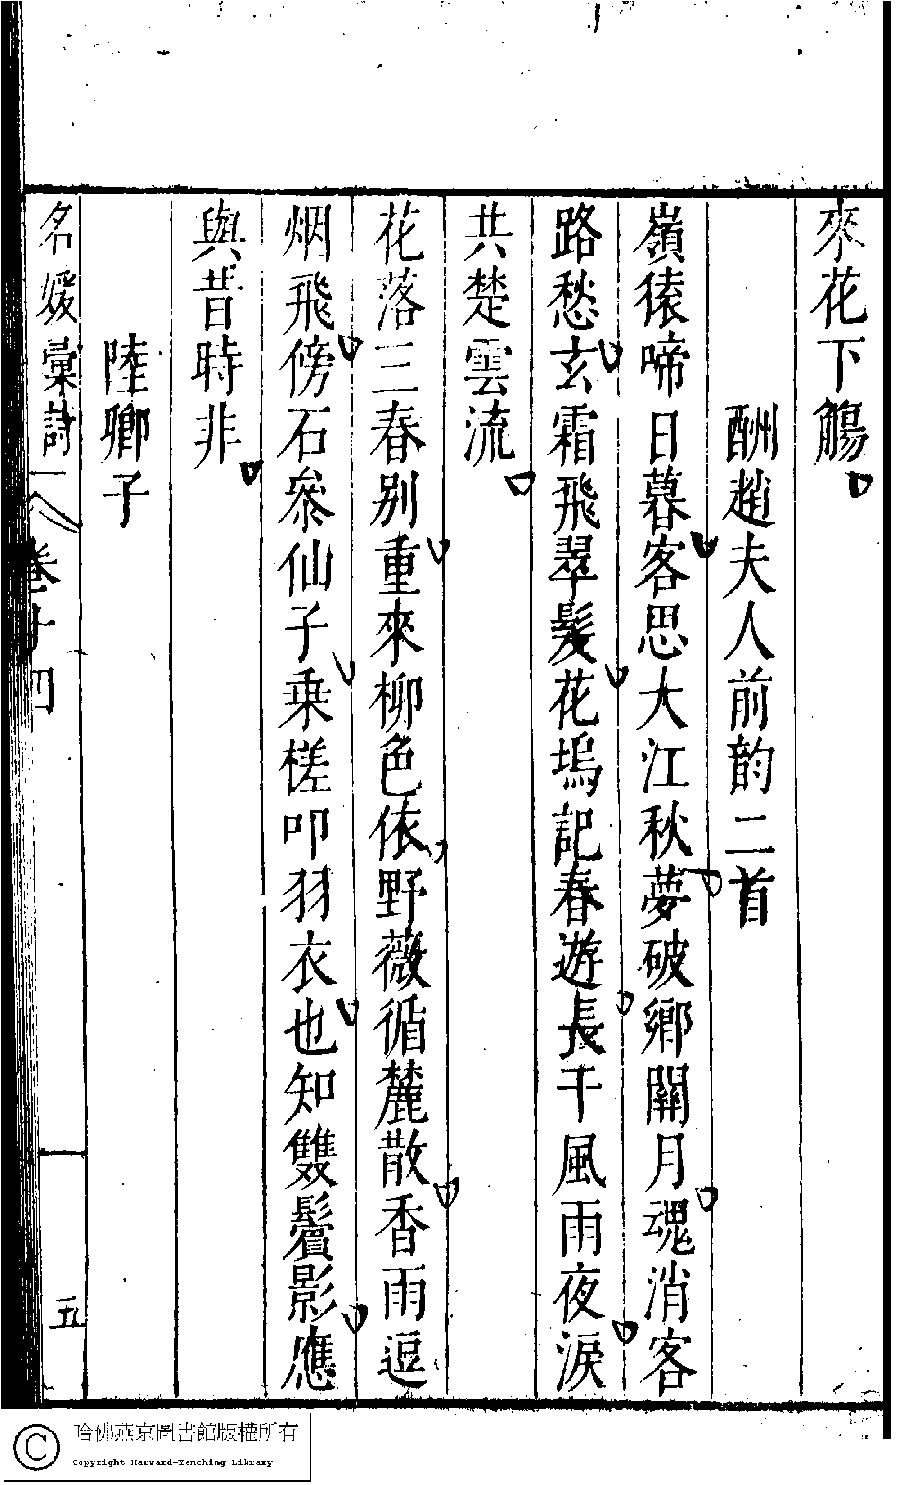 來花下觴
酬趙夫人前韵二首
嶺猿啼日暮客思大江秋夢破鄉關月魂消客
路愁玄霜飛翠髮花塢記春遊長干風雨夜淚
共楚雲流
花落三春別重來柳色依野薇循麓散香雨逗
烟飛傍石參仙子乘槎叩羽衣也知雙鬢影應
與昔時非
陸卿子
名媛彙詩 卷十四 五
哈佛燕京圖書館版權所有
Copyright Harvard-Yenching Library